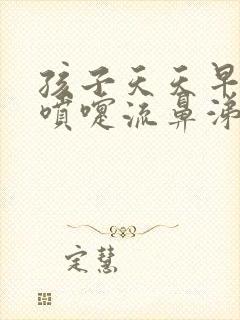 孩子天天早
喷嚏流鼻涕
定慧